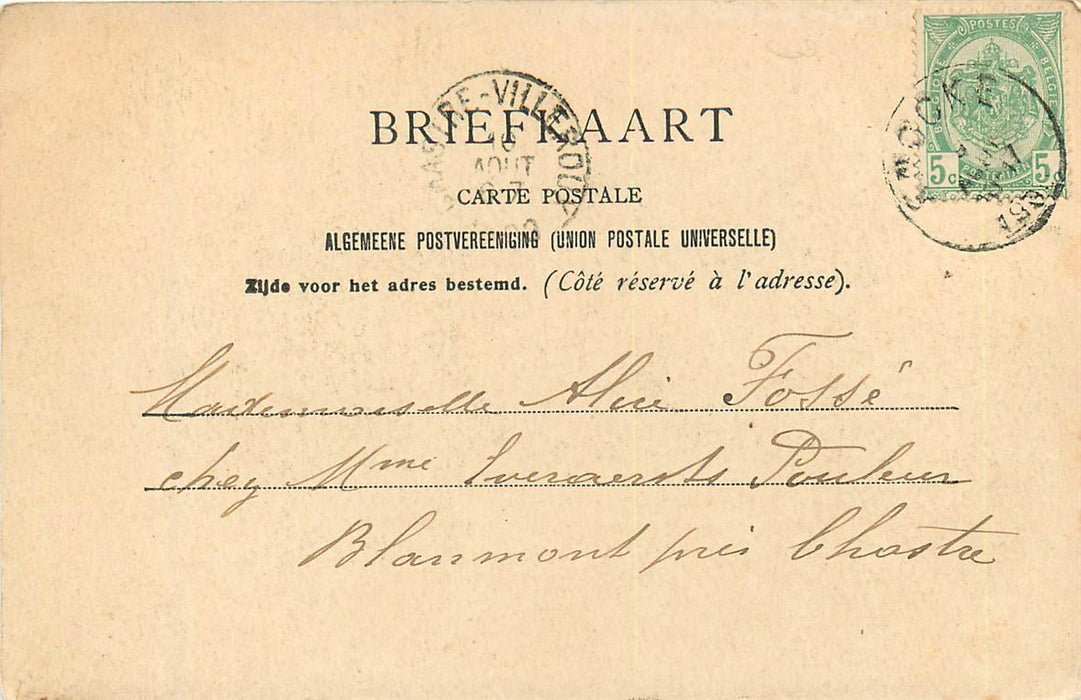 POSTES
BELGIQUE BELGIË
5c 5c
KNOCKE
VILLEROUX
10
AOUT
BRIEFKAART
CARTE POSTALE
ALGEMEENE POSTVEREENIGING (UNION POSTALE UNIVERSELLE)
Zijde voor het adres bestemd. (Côté réservé à l'adresse).
Mademoiselle Alice Fossé
chez Mme Everaerts Pouleur
Blanmont près Chastre